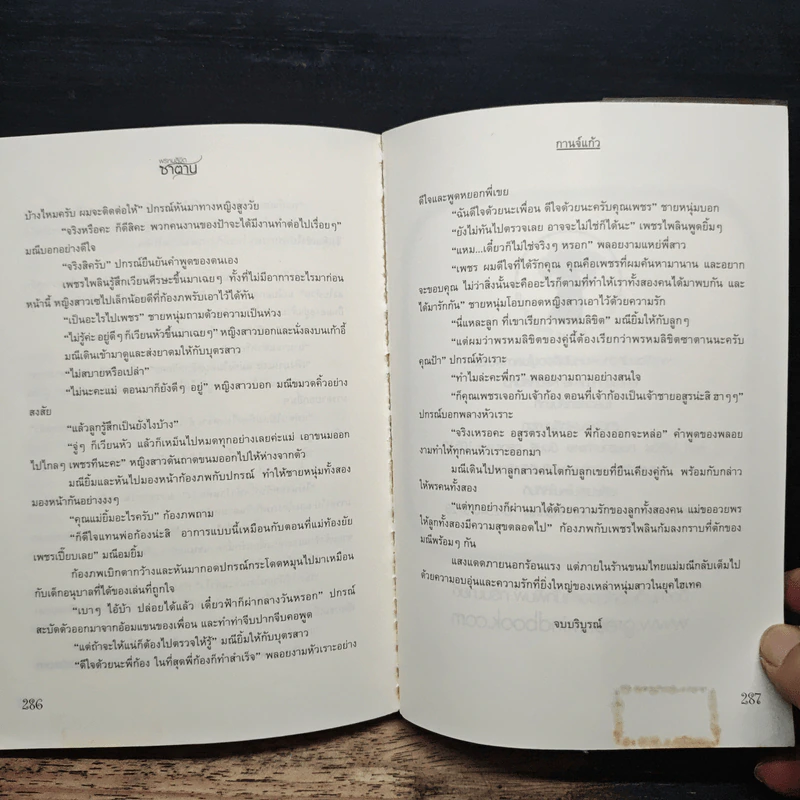 พรหมลิขิต
ซาตาน
บ้างไหมครับ ผมจะติดต่อให้” ปกรณ์หันมาทางหญิงสูงวัย
“จริงหรือคะ ก็ดีสิคะ พวกคนงานของป้าจะได้มีงานทำต่อไปเรื่อยๆ”
มณีบอกอย่างดีใจ
“จริงสิครับ” ปกรณ์ยืนยันคำพูดของตนเอง
เพชรไพลินรู้สึกเวียนศีรษะขึ้นมาเฉยๆ ทั้งที่ไม่มีอาการอะไรมาก่อน
หน้านี้ หญิงสาวเซไปเล็กน้อยดีที่ก้องภพรับเอาไว้ได้ทัน
“เป็นอะไรไปเพชร” ชายหนุ่มถามด้วยความเป็นห่วง
“ไม่รู้ค่ะ อยู่ดีๆ ก็เวียนหัวขึ้นมาเฉยๆ” หญิงสาวบอกและนั่งลงบนเก้าอี้
มณีเดินเข้ามาดูและส่งยาดมให้กับบุตรสาว
“ไม่สบายหรือเปล่า”
“ไม่นะคะแม่ ตอนมาก็ยังดีๆ อยู่” หญิงสาวบอก มณีขมวดคิ้วอย่าง
สงสัย
“แล้วลูกรู้สึกเป็นยังไงบ้าง”
“จู่ๆ ก็เวียนหัว แล้วก็เหม็นไปหมดทุกอย่างเลยค่ะแม่ เอาขนมออก
ไปไกลๆ เพชรทีนะคะ” หญิงสาวดันถาดขนมออกไปให้ห่างจากตัว
มณียิ้มและหันไปมองหน้าก้องภพกับปกรณ์ ทำให้ชายหนุ่มทั้งสอง
มองหน้ากันอย่างงงๆ
“คุณแม่ยิ้มอะไรครับ” ก้องภพถาม
“ก็ดีใจแทนพ่อก้องน่ะสิ อาการแบบนี้เหมือนกับตอนที่แม่ท้องยัย
เพชรเปี๊ยบเลย” มณีอมยิ้ม
ก้องภพเบิกตากว้างและหันมากอดปกรณ์กระโดดหมุนไปมาเหมือน
กับเด็กอนุบาลที่ได้ของเล่นที่ถูกใจ
“เบาๆ ไอ้บ้า ปล่อยได้แล้ว เดี๋ยวฟ้าก็ผ่ากลางวันหรอก” ปกรณ์
สะบัดตัวออกมาจากอ้อมแขนของเพื่อน และทำท่าจีบปากจีบคอพูด
“แต่ถ้าจะให้แน่ก็ต้องไปตรวจให้รู้” มณียิ้มให้กับบุตรสาว
“ดีใจด้วยนะพี่ก้อง ในที่สุดพี่ก้องก็ทำสำเร็จ” พลอยงามหัวเราะอย่าง
286
กานจ์แก้ว
ดีใจและพูดหยอกพี่เขย
“ฉันดีใจด้วยนะเพื่อน ดีใจด้วยนะครับคุณเพชร” ชายหนุ่มบอก
“ยังไม่ทันไปตรวจเลย อาจจะไม่ใช่ก็ได้นะ” เพชรไพลินพูดยิ้มๆ
“แหม...เดี๋ยวก็ไม่ใช่จริงๆ หรอก” พลอยงามแหย่พี่สาว
“เพชร ผมดีใจที่ได้รักคุณ คุณคือเพชรที่ผมค้นหามานาน และอยาก
จะขอบคุณ ไม่ว่าสิ่งนั้นจะคืออะไรก็ตามที่ทำให้เราทั้งสองคนได้มาพบกัน และ
ได้มารักกัน” ชายหนุ่มโอบกอดหญิงสาวเอาไว้ด้วยความรัก
“นี่แหละลูก ที่เขาเรียกว่าพรหมลิขิต” มณียิ้มให้กับลูกๆ
“แต่ผมว่าพรหมลิขิตของคู่นี้ต้องเรียกว่าพรหมลิขิตซาตานนะครับ
คุณป้า” ปกรณ์หัวเราะ
“ทำไมล่ะคะพี่กร” พลอยงามถามอย่างสนใจ
“ก็คุณเพชรเจอกับเจ้าก้อง ตอนที่เจ้าก้องเป็นเจ้าชายอสูรน่ะสิ ฮาๆๆ”
ปกรณ์บอกพลางหัวเราะ
“จริงเหรอคะ อสูรตรงไหนอะ พี่ก้องออกจะหล่อ” คำพูดของพลอย
งามทำให้ทุกคนหัวเราะออกมา
มณีเดินไปหาลูกสาวคนโตกับลูกเขยที่ยืนเคียงคู่กัน พร้อมกับกล่าว
ให้พรคนทั้งสอง
“แต่ทุกอย่างก็ผ่านมาได้ด้วยความรักของลูกทั้งสองคน แม่ขออวยพร
ให้ลูกทั้งสองมีความสุขตลอดไป” ก้องภพกับเพชรไพลินก้มลงกราบที่ตักของ
มณีพร้อมๆ กัน
แสงแดดภายนอกร้อนแรง แต่ภายในร้านขนมไทยแม่มณีกลับเต็มไป
ด้วยความอบอุ่นและความรักที่ยิ่งใหญ่ของเหล่าหนุ่มสาวในยุคไฮเทค
จบบริบูรณ์
287